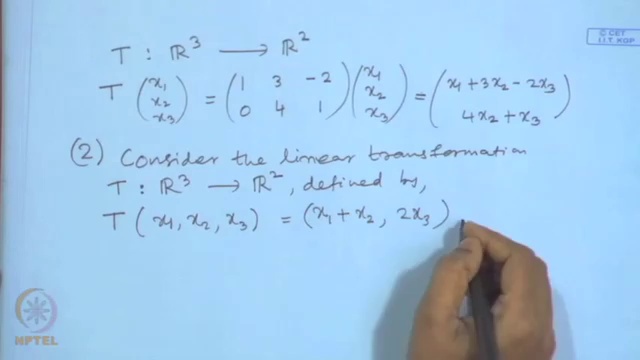 © CET
I.I.T. KGP
T : ℝ³ ⟶ ℝ²
T (x₁ x₂ x₃) = (1 3 -2 0 4 1) (x₁ x₂ x₃) = (x₁ + 3x₂ - 2x₃ 4x₂ + x₃)
(2) Consider the linear transformation
T : ℝ³ ⟶ ℝ², defined by,
T (x₁, x₂, x₃) = (x₁ + x₂, 2x₃)
NPTEL